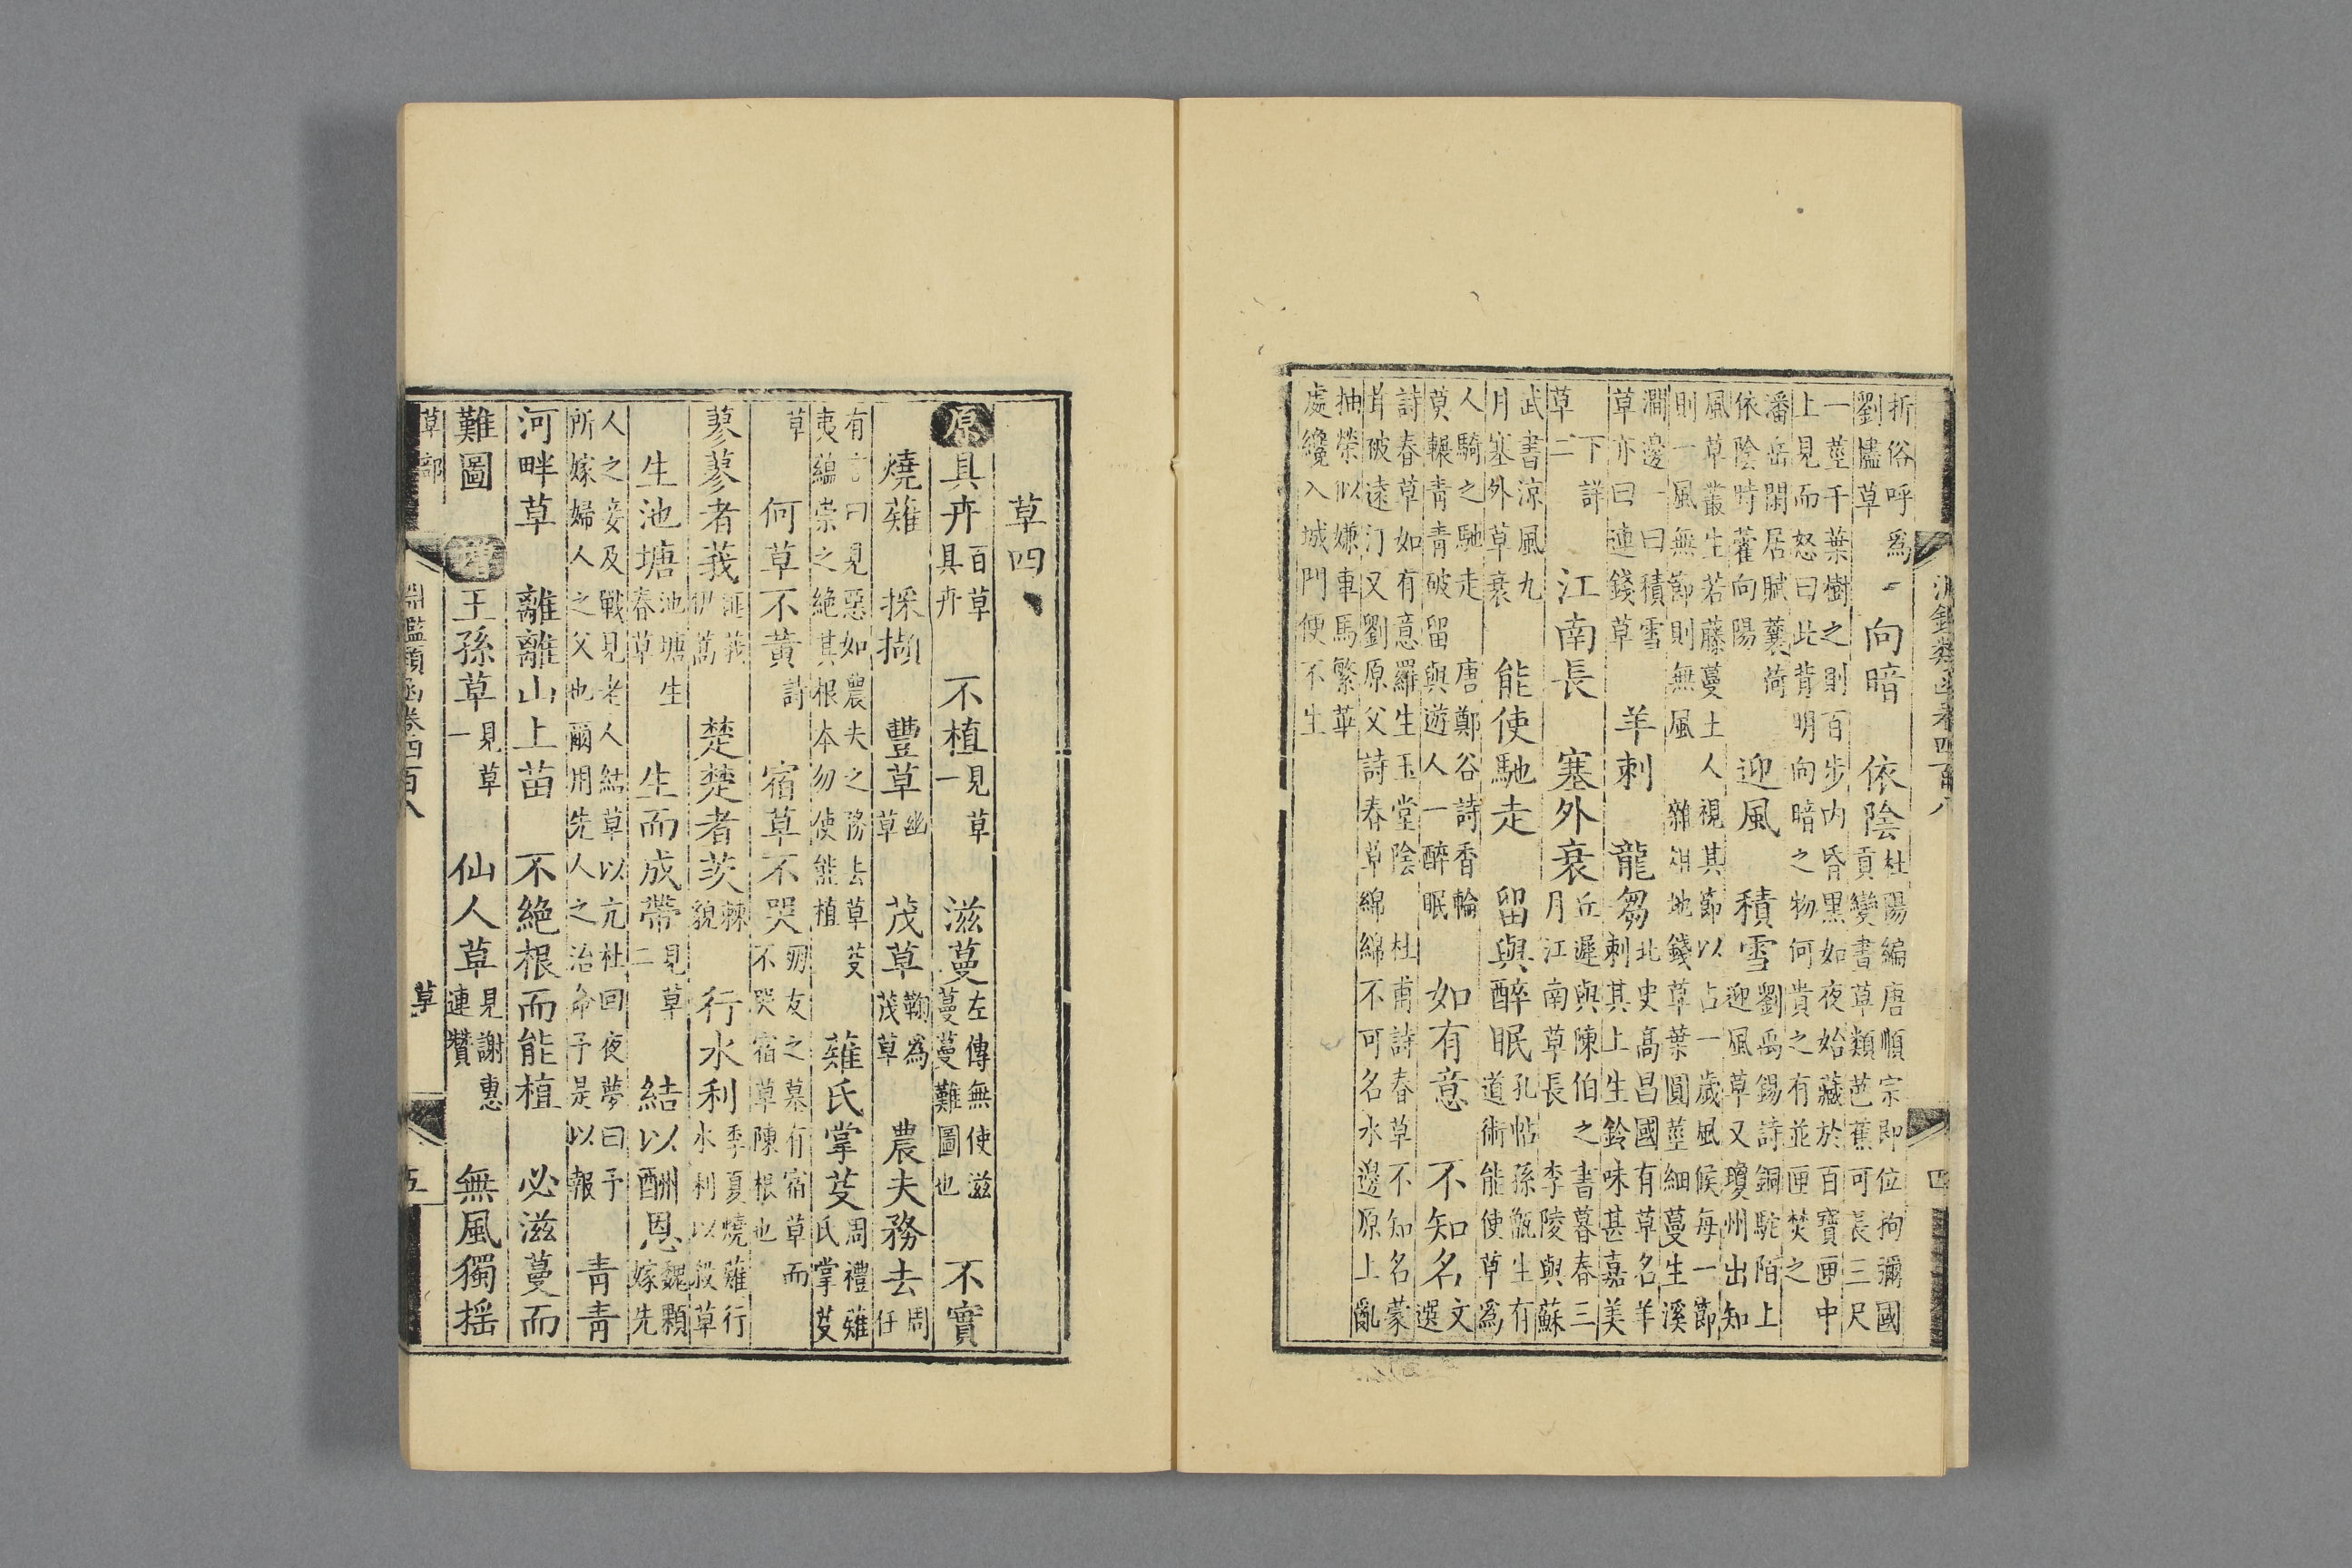 淵鑑類函卷四百八　四
折俗呼爲劉㒑草　向暗　依陰　杜陽編唐順宗即位拘彌國貢變晝草類芭蕉可長三尺
一莖千葉樹之則百步內昏黑如夜始藏於百寶匣中上見而怒曰此背明向暗之物何貴之有並匣焚之
潘岳閒居賦蘘荷依陰時藿向陽　迎風　積雪　劉禹錫詩銅駝陌上迎風草又瓊州出知
風草叢生若藤蔓土人視其節以占一歲風候每一節則一風無節則無風　雜俎地錢草葉圓莖細蔓生溪
澗邊一曰積雪草亦曰連錢草　羊刺　龍芻　北史高昌國有草名羊刺其上生鈴味甚嘉美
下詳草二　江南長　塞外衰　丘遲與陳伯之書暮春三月江南草長　李陵與蘇
武書涼風九月塞外草衰　能使馳走　留與醉眠　孔帖孫甑生有道術能使草爲
人騎之馳走　唐鄭谷詩香輪莫輾青青破留與遊人一醉眠　如有意　不知名　文選
詩春草如有意羅生玉堂陰　杜甫詩春草不知名　蒙茸破遠汀又劉原父詩春草綿綿不可名水邊原上亂
抽榮似嫌車馬繁華處纔入城門便不生
草四
原　具卉　百草具卉　不植　見草一　滋蔓　左傳無使滋蔓蔓難圖也　不實
燒薙　採擷　豐草　豳草　茂草　鞠爲茂草　農夫務去　周任
有言曰見惡如農夫之務去草芟夷蘊崇之絕其根本勿使能植　薙氏掌芟　周禮薙氏掌芟
草　何草不黃　詩　宿草不哭　朋友之墓有宿草而不哭宿草陳根也
蓼蓼者莪　匪莪伊蒿　楚楚者茨　棘貌　行水利　季夏燒薙行水利以殺草
生池塘　池塘生春草　生而成帶　見草二　結以酬恩　魏顆嫁先
人之妾及戰見老人結草以亢杜回夜夢曰予所嫁婦人之父也爾用先人之治命予是以報　青青
河畔草　離離山上苗　不絕根而能植　必滋蔓而
難圖　增　王孫草　見草一　仙人草　見謝惠連贊　無風獨搖
草部　淵鑑類函卷四百八　草　五